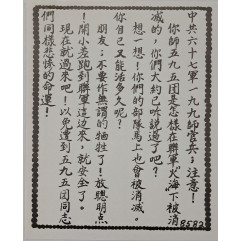 中共六十七軍一九九師官兵；注意！
你師五九五团是怎樣在聯軍火海下被消
减的，你們大約已听說过了吧？
想一想！你們的部隊馬上也會被消滅。
你自己又能活多久呢？
朋友：不要作無謂的牺牲了！放聰明点
！開小差跑到聯軍這边來，就安全了。
現在就過來吧！以免遭到五九五团同志
們同樣悲慘的命運！
8582